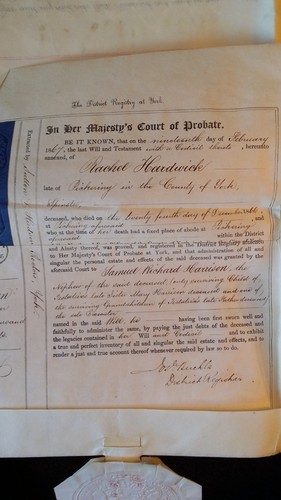 The District Registry at York.
In Her Majesty's Court of Probate.
BE IT KNOWN, that on the nineteenth day of February
1867, the last Will and Testament with a Codicil thereto, hereunto
annexed, of
Rachel Hardwick
late of Pickering in the County of York,
Spinster
deceased, who died on the twenty fourth day of December 1866,
at Pickering aforesaid
who at the time of her death had a fixed place of abode at Pickering
aforesaid within the District
and Ainsty thereof, was proved, and registered in the District Registry
to Her Majesty's Court of Probate at York, and that administration of all and
singular the personal estate and effects of the said deceased was granted by the
aforesaid Court to Samuel Richard Harrison, the
Nephew of the said deceased, only surviving Child of
Testatrix's late Sister Mary Harrison deceased and one of
the surviving Grandchildren of Testatrix's late Father deceased
the sole Executor
named in the said Will he having been first sworn well and
faithfully to administer the same, by paying the just debts of the deceased and
the legacies contained in her Will and Codicil and to exhibit
a true and perfect inventory of all and singular the said estate and effects, and to
render a just and true account thereof whenever required by law so to do.
Jos. Buckle
District Registrar
York.